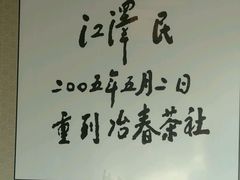 江澤民
二〇〇五年五月二日
重到冶春茶社